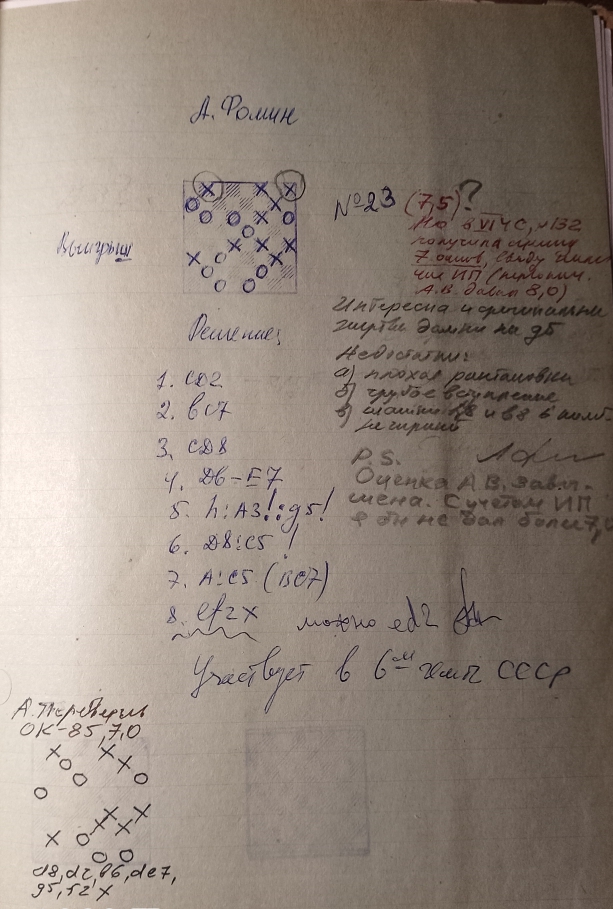 А. Фомин
№23 (7,5)?
Но в VI ЧС, №132
получила оценку
7 очков, ввиду
ИП
А.В. давал 8,0)
Выигрыш
Интересна и оригинальна
жертва дамки на g5
Недостатки:
а) плохая расстановка
б) грубое вступление
в) шашки и в8 в
не играют
Решение:
1. cD2
2. bc7
3. cD8
4. Db-E7
5. h:A3!:g5!
6. D8:c5!
7. A:c5 (BC7)
8. efzx можно ed2
P.S.
Оценка А.В. завы-
шена. С учётом ИП
я бы не дал более 7,0
Участвует в 6-м чемп СССР
ОК-85, 7,0
d8, d2, b6, de7,
g5, f2 x